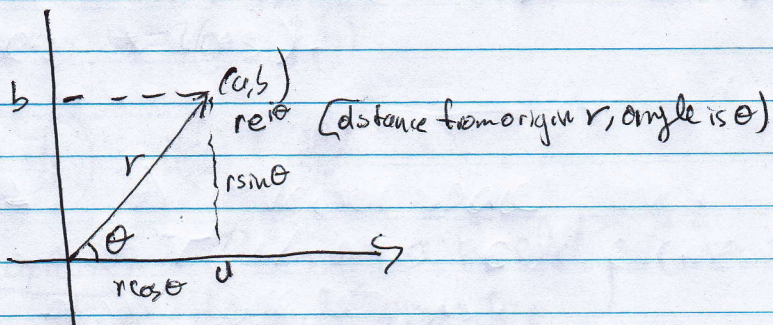 (a,b)
b
re^{iθ} (distance from origin r, angle is θ)
r
r sinθ
θ
r cosθ a